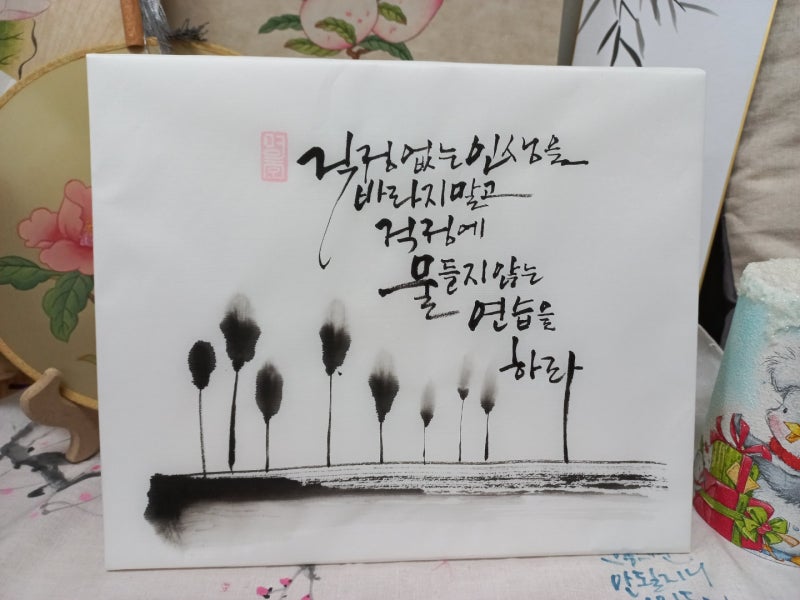 걱정없는인생을
바라지말고
걱정에
물들지않는
연습을
하라